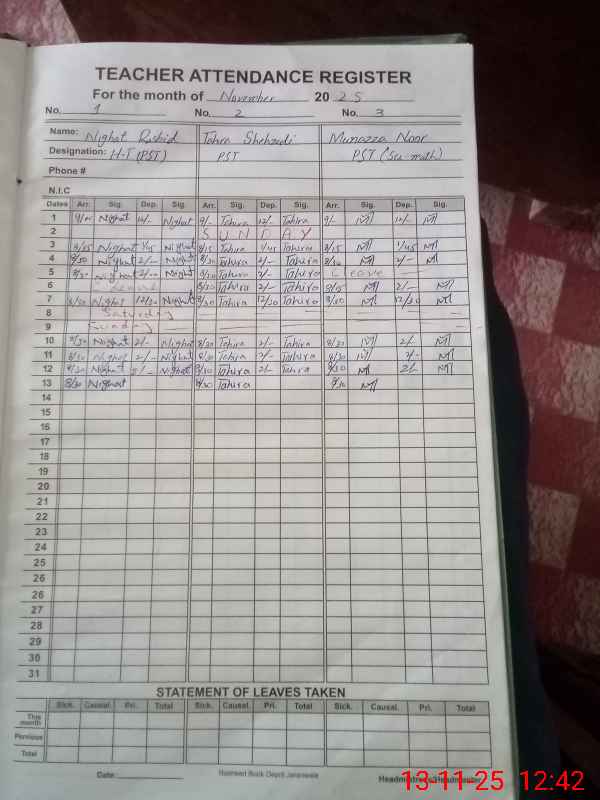 TEACHER ATTENDANCE REGISTER
For the month of November 2025
No. 1 No. 2 No. 3
Name: Nighat Rashid Tahra Shehzadi Munazza Noor
Designation: H-T (PST) PST PST (Sci math)
Phone #
N.I.C
Dates Arr. Sig. Dep. Sig. Arr. Sig. Dep. Sig. Arr. Sig. Dep. Sig.
1 9/- Nighat 12/- Nighat 9/- Tahira 12/- Tahira 9/- 12/-
2 SUNDAY
3 8/15 Nighat 1/45 Nighat 8/15 Tahira 1/45 Tahira 8/15 1/45
4 8/30 Nighat 2/- Nighat 8/30 Tahira 2/- Tahira 8/30 2/-
5 8/30 Nighat 2/- Nighat 8/30 Tahira 2/- Tahira C leave
6 8/30 Tahira 2/- Tahira 2/-
7 8/30 Nighat 12/30 Nighat 8/30 Tahira 12/30 Tahira 8/30 12/30
8 Saturday
9 Sunday
10 8/30 Nighat 2/- Nighat 8/30 Tahira 2/- Tahira 8/30 2/-
11 8/30 Nighat 2/- Nighat 8/30 Tahira 2/- Tahira 8/30 2/-
12 8/30 Nighat 2/- Nighat 8/30 Tahira 2/- Tahira 8/30 2/-
13 8/30 Nighat 8/30 Tahira 8/30
14
15
16
17
18
19
20
21
22
23
24
25
26
26
27
28
29
30
31
STATEMENT OF LEAVES TAKEN
Sick. Causal. Pri. Total Sick. Causal. Pri. Total Sick. Causal. Pri. Total
This month
Pervious
Total
Date: Book Depot Jaranwala Headmistress/Headmaster
13-11-25 12:42